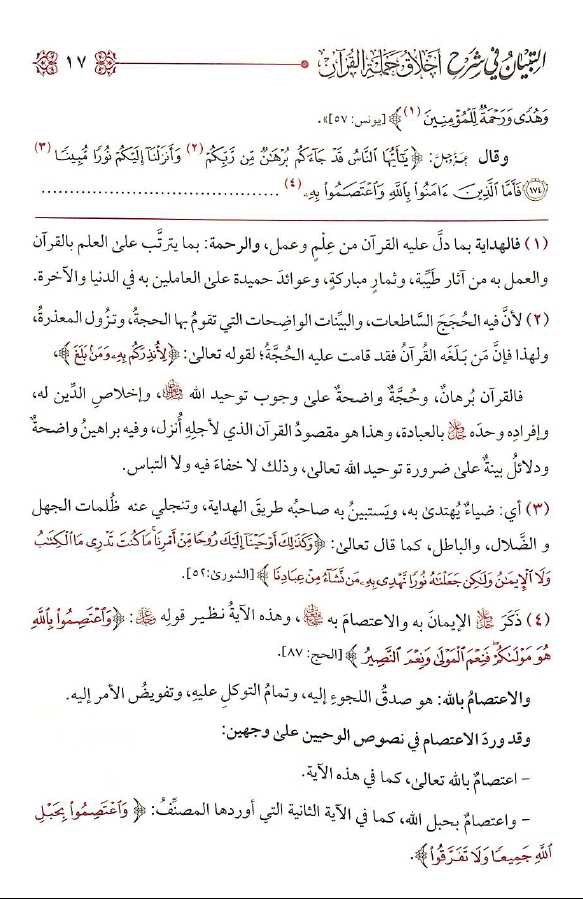 التبيان في شرح أخلاق حملة القرآن ١٧
وَهُدًى وَرَحْمَةٌ لِّلْمُؤْمِنِينَ (١) ﴾ [يونس: ٥٧]».
وقال عز وجل: ﴿ يَٰٓأَيُّهَا ٱلنَّاسُ قَدْ جَآءَكُم بُرْهَٰنٌ مِّن رَّبِّكُمْ (٢) وَأَنزَلْنَآ إِلَيْكُمْ نُورًا مُّبِينًا (٣)
١٧٤ فَأَمَّا ٱلَّذِينَ ءَامَنُوا۟ بِٱللَّهِ وَٱعْتَصَمُوا۟ بِهِۦ (٤) ........................................
(١) فالهداية بما دلَّ عليه القرآن من عِلْمٍ وعمل، والرحمة: بما يترتَّب على العلم بالقرآن
والعمل به من آثار طَيِّبة، وثمارٍ مباركةٍ، وعوائدَ حميدة على العاملين به في الدنيا والآخرة.
(٢) لأنَّ فيه الحُجَجَ السَّاطعات، والبيِّنات الواضِحات التي تقومُ بها الحجةُ، وتزُول المعذرةُ،
ولهذا فإنَّ مَن بَلَغَه القُرآنُ فقد قامت عليه الحُجَّةُ؛ لقوله تعالى: ﴿لِأُنذِرَكُم بِهِۦ وَمَنۢ بَلَغَ ﴾،
فالقرآن بُرهانٌ، وحُجَّةٌ واضحةٌ على وجوب توحيد الله ﷻ، وإخلاصِ الدِّين له،
وإفرادِه وحدَه ﷻ بالعبادة، وهذا هو مقصودُ القرآن الذي لأجلِهِ أُنزل، وفيه براهينُ واضحةٌ
ودلائلُ بينةٌ على ضرورة توحيد الله تعالى، وذلك لا خفاءَ فيه ولا التباس.
(٣) أي: ضياءً يُهتدىٰ به، ويَستبينُ به صاحبُه طريقَ الهداية، وتنجلي عنه ظُلمات الجهل
و الضَّلال، والباطل، كما قال تعالى: ﴿وَكَذَٰلِكَ أَوْحَيْنَآ إِلَيْكَ رُوحًا مِّنْ أَمْرِنَا ۚ مَا كُنتَ تَدْرِى مَا ٱلْكِتَٰبُ
وَلَا ٱلْإِيمَٰنُ وَلَٰكِن جَعَلْنَٰهُ نُورًا نَّهْدِى بِهِۦ مَن نَّشَآءُ مِنْ عِبَادِنَا ﴾ [الشورى:٥٢].
(٤) ذَكَرَ ﷻ الإيمانَ به والاعتصامَ به ﷻ، وهذه الآيةُ نظير قولِه ﷻ: ﴿وَٱعْتَصِمُوا۟ بِٱللَّهِ
هُوَ مَوْلَىٰكُمْ ۖ فَنِعْمَ ٱلْمَوْلَىٰ وَنِعْمَ ٱلنَّصِيرُ ﴾ [الحج: ٨٧].
والاعتصامُ بالله: هو صدقُ اللجوءِ إليه، وتمامُ التوكلِ عليهِ، وتفويضُ الأمر إليه.
وقد وردَ الاعتصام في نصوص الوحيين على وجهين:
– اعتصامٌ بالله تعالى، كما في هذه الآية.
– واعتصامٌ بحبل الله، كما في الآية الثانية التي أوردها المصنِّفُ: ﴿ وَٱعْتَصِمُوا۟ بِحَبْلِ
ٱللَّهِ جَمِيعًا وَلَا تَفَرَّقُوا۟ ﴾.